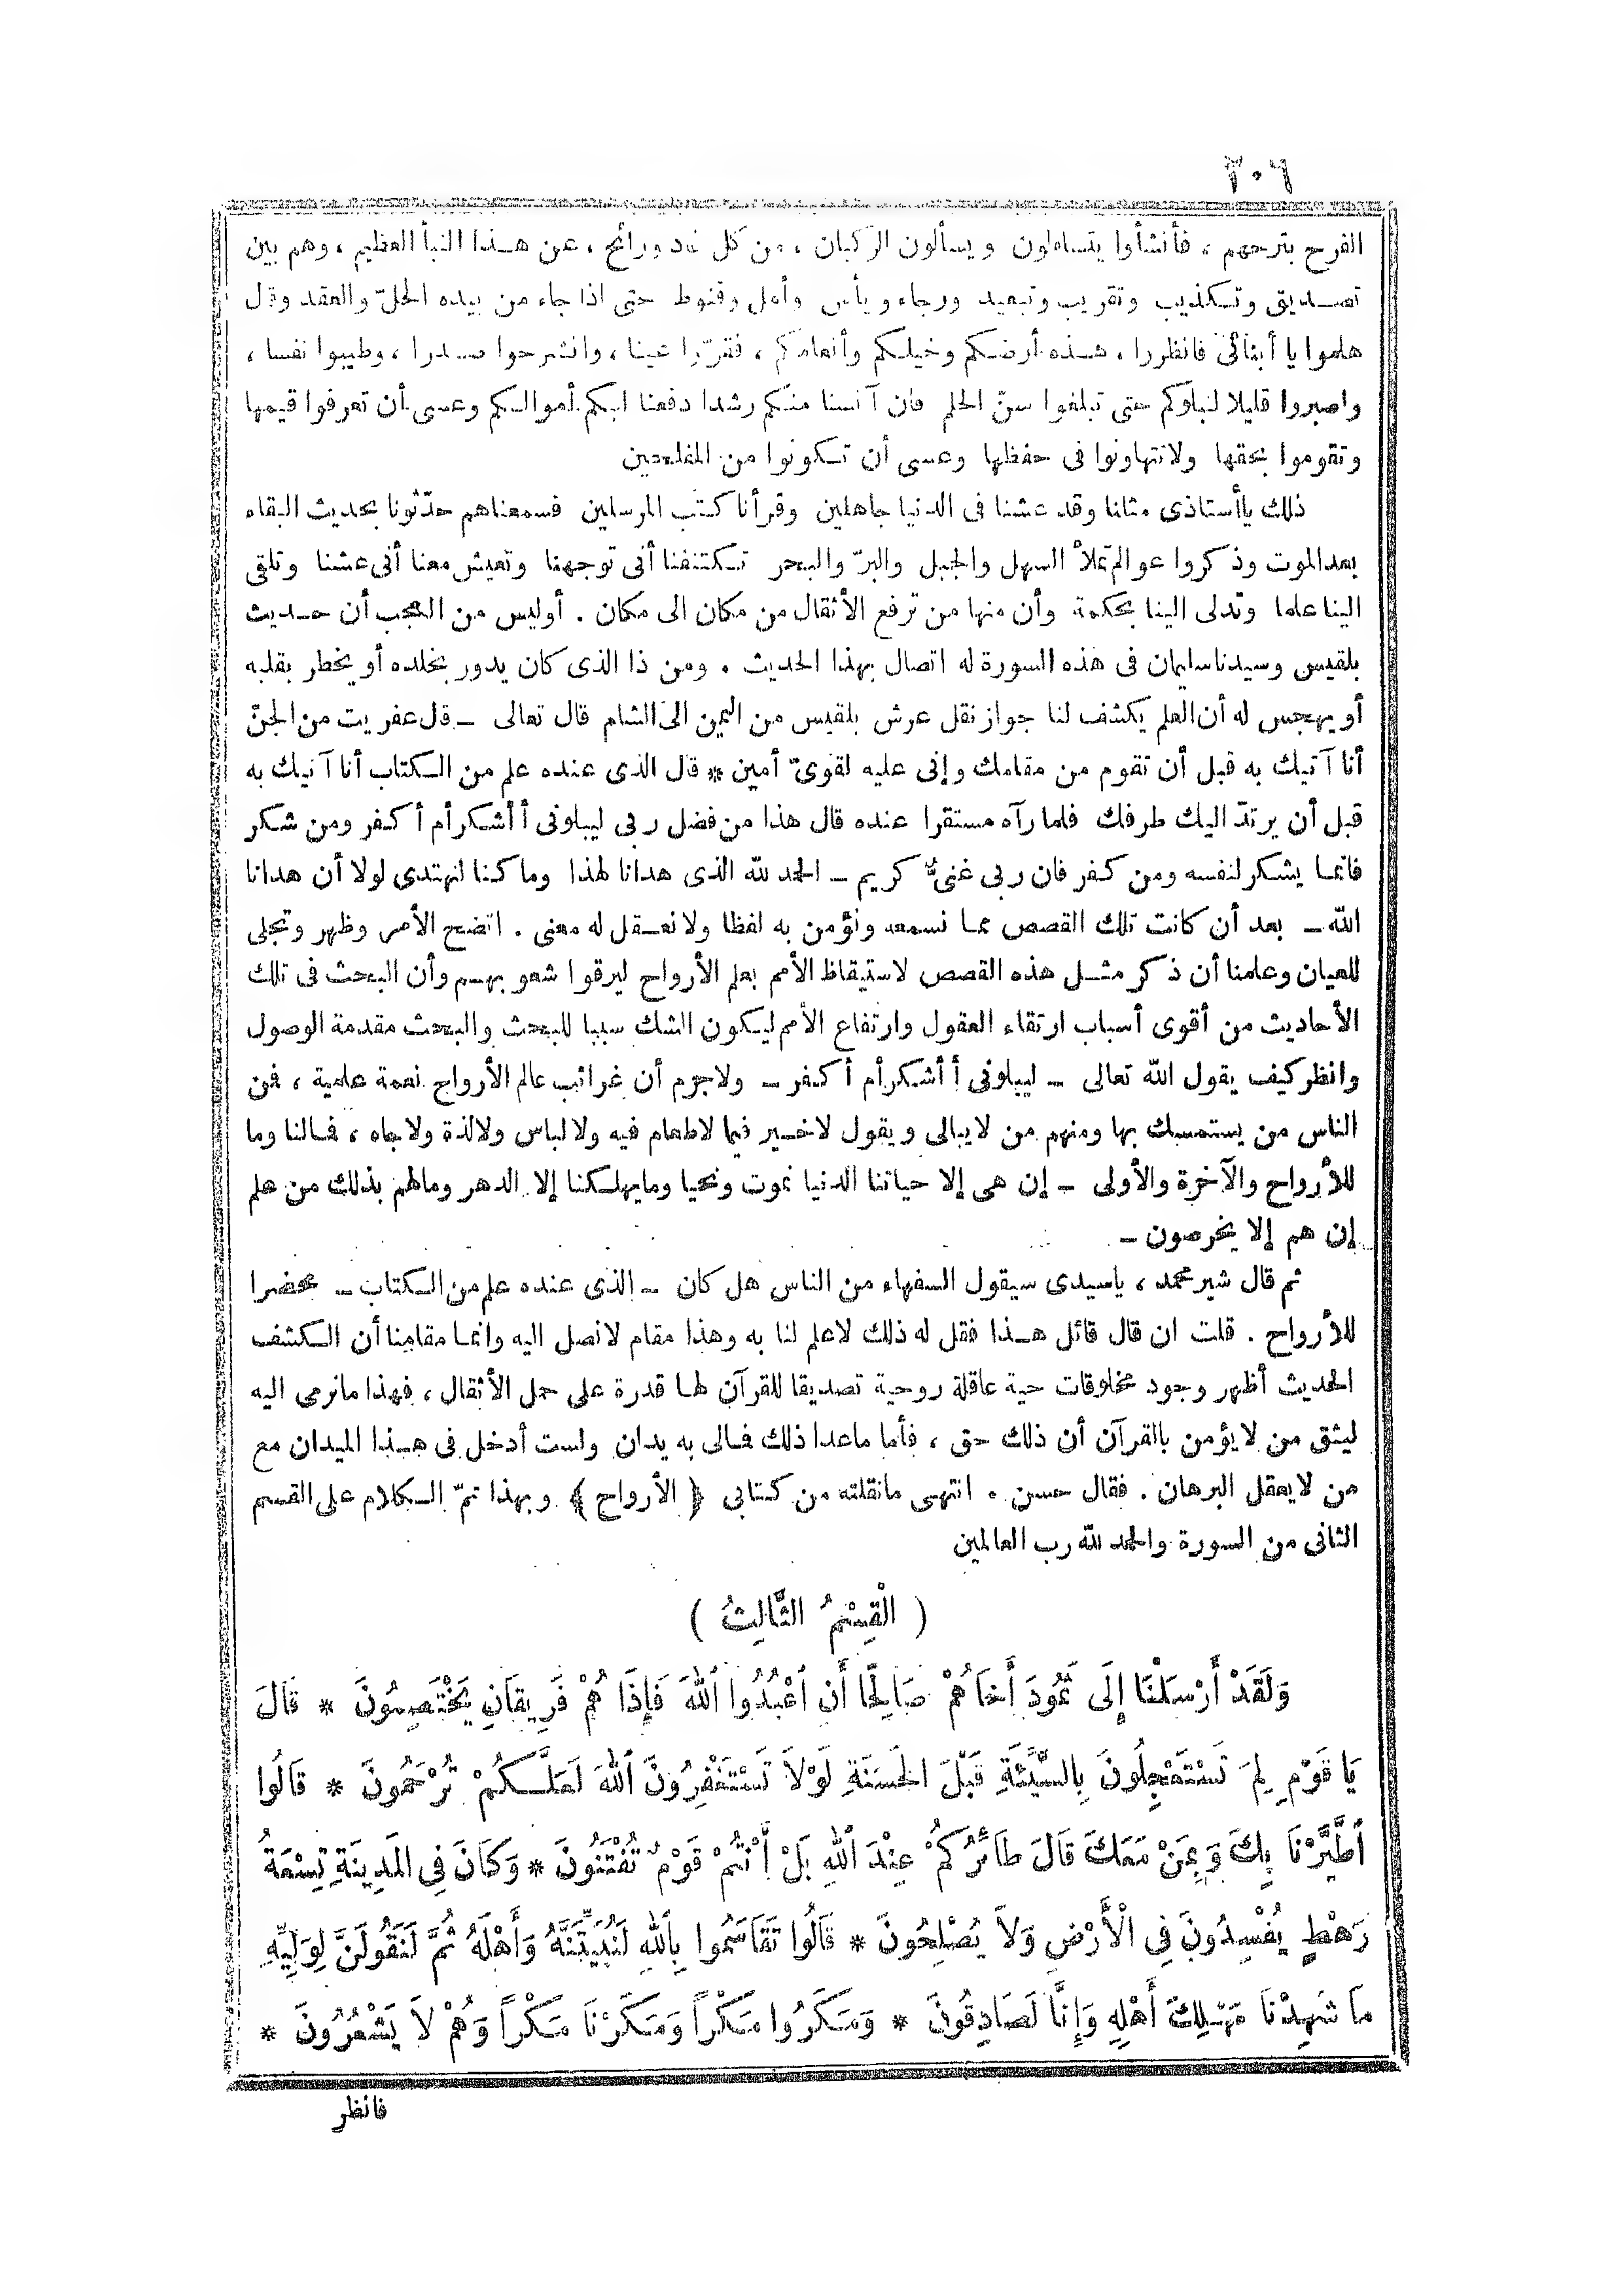 ٢٠٦
الفرح بترحهم ، فأنشأوا يتساءلون ويسألون الركبان ، من كل غاد ورائح ، عن هـذا النبأ العظيم ، وهم بين
تصـديق وتـكذيب وتقريب وتبعيد ورجاء ويأس وأمل وقنوط حتى اذا جاء من بيده الحلّ والعقد وقال
هلموا يا أبنائى فانظروا ، هـذه أرضـكم وخيلـكم وأنعامكم ، فقرّوا عينا ، وانشرحوا صـدرا ، وطيبوا نفسا ،
واصبروا قليلا لنبلوكم حتى تبلغوا سنّ الحلم فان آنسنا منكم رشدا دفعنا اليكم أموالـكم وعسى أن تعرفوا قيمها
وتقوموا بحقها ولاتتهاونوا فى حفظها وعسى أن تـكونوا من المفلحين
ذلك ياأستاذى مثلنا وقد عشنا فى الدنيا جاهلين وقرأنا كتب المرسلين فسمعناهم حدّثونا بحديث البقاء
بعد الموت وذكروا عوالم تملأ السهل والجبل والبرّ والبحر تـكتنفنا أنى توجهنا وتعيش معنا أنى عشنا وتلقى
الينا علما وتدلى الينا بحكمة وأن منها من ترفع الأثقال من مكان الى مكان . أوليس من العجب أن حـديث
بلقيس وسيدنا سليمان فى هذه السورة له اتصال بهذا الحديث . ومن ذا الذى كان يدور بخلده أو يخطر بقلبه
أو يهجس له أن العلم يكشف لنا جواز نقل عرش بلقيس من اليمن الى الشام قال تعالى ـ قال عفريت من الجنّ
أنا آتيك به قبل أن تقوم من مقامك وإنى عليه لقوىّ أمين * قال الذى عنده علم من الـكتاب أنا آتيك به
قبل أن يرتدّ اليك طرفك فلما رآه مستقرا عنده قال هذا من فضل ربى ليبلونى أأشكر أم أكفر ومن شكر
فانما يشكر لنفسه ومن كـفر فان ربى غنىّ كريم ـ الحمد لله الذى هدانا لهذا وماكنا لنهتدى لولا أن هدانا
الله ـ بعد أن كانت تلك القصص مما نسمعه ونؤمن به لفظا ولانعـقل له معنى . اتضح الأمر وظهر وتجلى
للعيان وعلمنا أن ذكر مثـل هذه القصص لاستيقاظ الأمم بعلم الأرواح ليرقوا شعوبهـم وأن البحث فى تلك
الأحاديث من أقوى أسباب ارتقاء العقول وارتفاع الأمم ليـكون الشك سببا للبحث والبحث مقدمة الوصول
وانظر كيف يقول الله تعالى ـ ليبلونى أأشكر أم أكفر ـ ولاجرم أن غرائب عالم الأرواح نعمة علمية ، فمن
الناس من يستمسك بها ومنهم من لايبالى ويقول لاخـير فيما لاطعام فيه ولا لباس ولالذة ولاجاه ، فمـالنا وما
للأرواح والآخرة والأولى ـ إن هى إلا حياتنا الدنيا نموت ونحيا ومايهلـكنا إلا الدهر ومالهم بذلك من علم
إن هم إلا يخرصون ـ
ثم قال شير محمد ، ياسيدى سيقول السفهاء من الناس هل كان ـ الذى عنده علم من الـكتاب ـ محضرا
للأرواح . قلت ان قال قائل هـذا فقل له ذلك لاعلم لنا به وهذا مقام لانصل اليه وانمـا مقامنا أن الـكشف
الحديث أظهر وجود مخلوقات حية عاقلة روحية تصديقا للقرآن لهـا قدرة على حمل الأثقال ، فهذا مانرمى اليه
ليثق من لايؤمن بالقرآن أن ذلك حق ، فأما ماعدا ذلك فمـالى به يدان ولست أدخل فى هـذا الميدان مع
من لايعقل البرهان . فقال حسن . انتهى مانقلته من كـتابى ﴿ الأرواح ﴾ وبهذا تمّ الـكلام على القسم
الثانى من السورة والحمد لله رب العالمين
( الْقِسْمُ الثَّالِثُ )
وَلَقَدْ أَرْسَلْنَا إِلَى ثَمُودَ أَخَاهُمْ صَالِحًا أَنِ اعْبُدُوا اللهَ فَإِذَا هُمْ فَرِيقَانِ يَخْتَصِمُونَ * قَالَ
يَا قَوْمِ لِمَ تَسْتَعْجِلُونَ بِالسَّيِّئَةِ قَبْلَ الْحَسَنَةِ لَوْلاَ تَسْتَغْفِرُونَ اللهَ لَعَلَّـكُمْ تُرْحَمُونَ * قَالُوا
اطَّيَّرْنَا بِكَ وَبِمَنْ مَعَكَ قَالَ طَائِرُكُمْ عِنْدَ اللهِ بَلْ أَنْتُمْ قَوْمٌ تُفْتَنُونَ * وَكَانَ فِى الْمَدِينَةِ تِسْعَةُ
رَهْطٍ يُفْسِدُونَ فِى الْأَرْضِ وَلاَ يُصْلِحُونَ * قَالُوا تَقَاسَمُوا بِاللهِ لَنُبَيِّتَنَّهُ وَأَهْلَهُ ثُمَّ لَنَقُولَنَّ لِوَلِيِّهِ
مَا شَهِدْنَا مَهْلِكَ أَهْلِهِ وَإِنَّا لَصَادِقُونَ * وَمَكَرُوا مَكْراً وَمَكَرْنَا مَكْراً وَهُمْ لاَ يَشْعُرُونَ *
فانظر